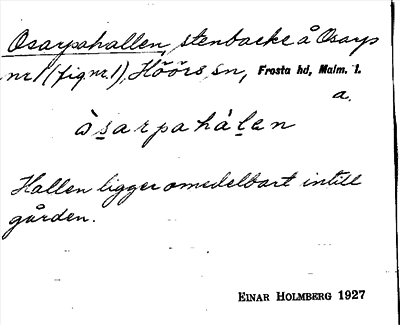 Osarpahallen, stenbacke å Osarp
nr 1 (fig nr. 1), Höörs sn, Frosta hd, Malm. l.
a.
òsarpahàlen
Hallen ligger omedelbart intill
gården.
EINAR HOLMBERG 1927